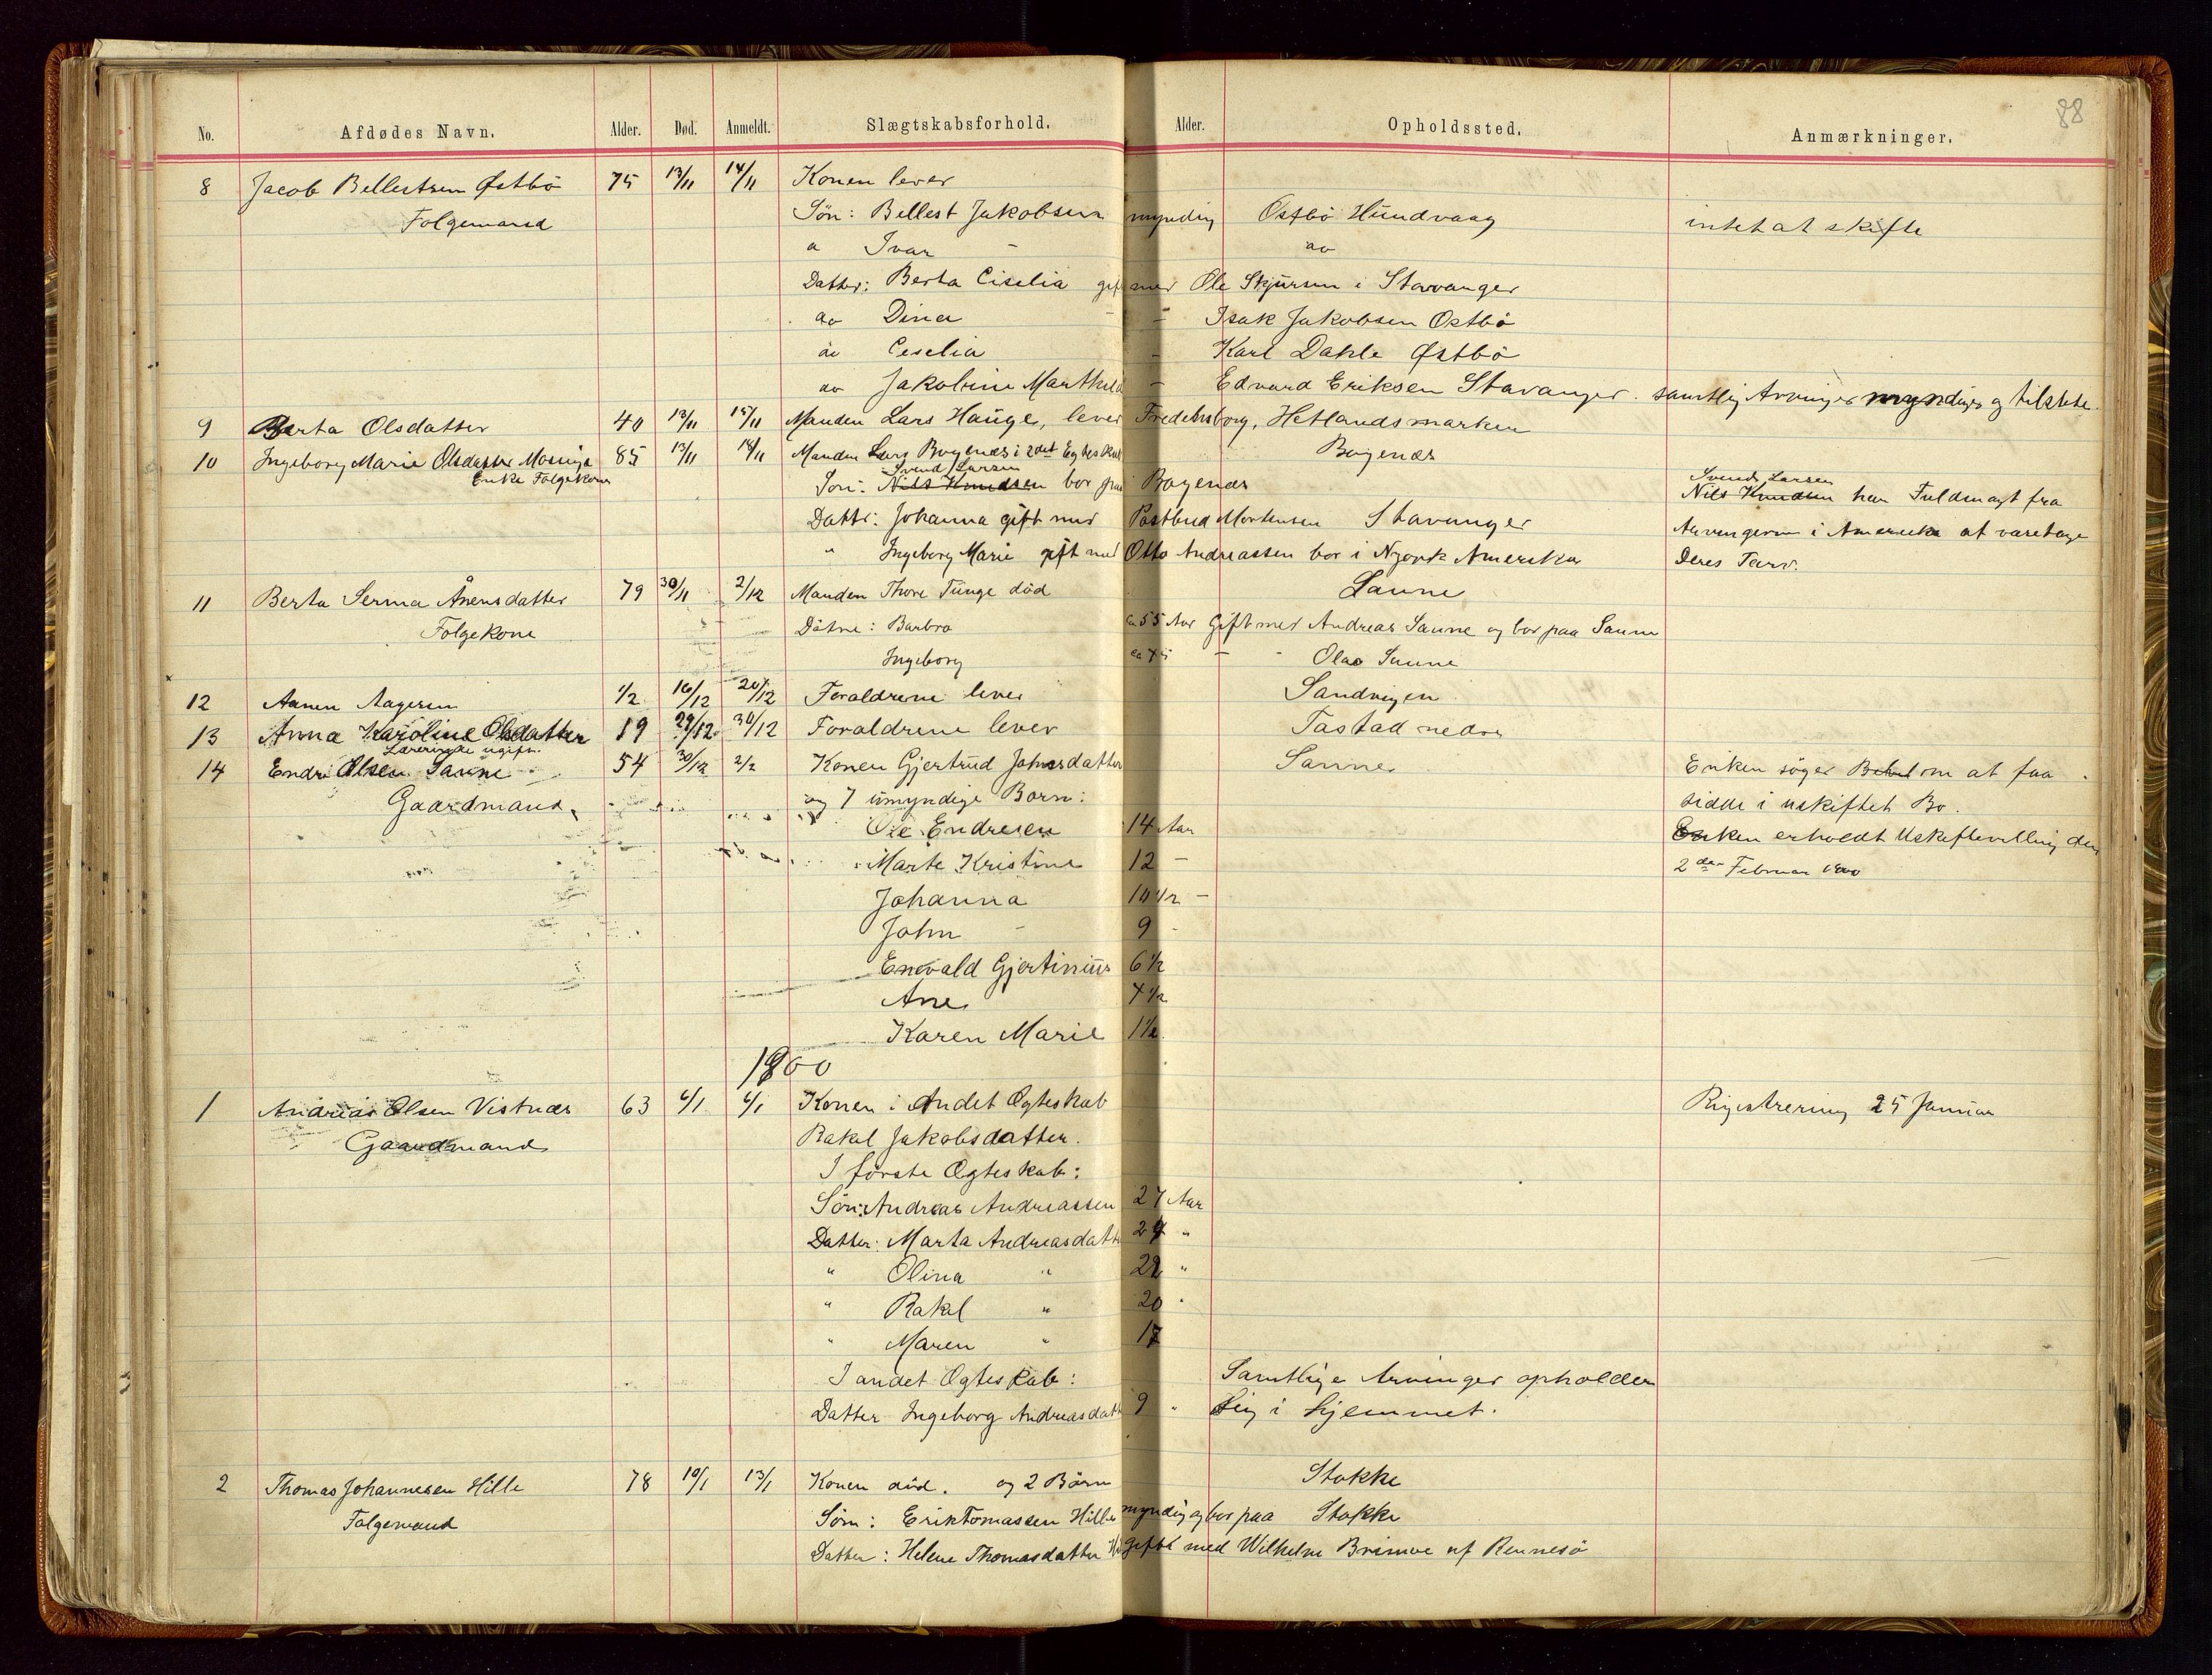 88
No. Afdødes Navn. Alder. Død. Anmeldt. Slægtskabsforhold. Alder. Opholdssted. Anmærkninger.
8 Jacob Bellestsen Østbö 75 13/11 14/11 Konen lever
Folgemand Sön: Bellest Jakobsen myndig Østbö Hundvaag intet at skifte
Ivar do
Datter: Berta Ciselia gift med Ole Sjursen i Stavanger
do Dina – Isak Jakobsen Ostbö
do Ceselia – Karl Dahle Østbö
do Jakobine Marthild – Edvard Eriksen Stavanger. samtlig Arvinger myndiger og tilstede.
9 Berta Olsdatter 40 13/11 15/11 Manden Lars Hauge, lever Fredensborg, Hetlandsmarken
10 Ingeborg Marie Olsdatter 85 13/11 14/11 Manden Lars Bogenæs i 2det Egteskab Bogenæs
Enke Folgekone Svend Larsen
Sön: Nils Knudsen bor paa Bogenæs Svend Larsen
Nils Knudsen har Fuldmagt fra
Datter: Johanna gift med Postbud Mortensen Stavanger Arvingerne i Amerika at varetage
" Ingeborg Marie gift med Otto Andreassen bor i Nyork Amerika Deres Tarv.
11 Berta Serina Ånensdatter 79 30/11 2/12 Manden Thore Tunge död Saune
Folgekone Dötre: Barbro ca 55 Aar Gift med Andreas Saune og bor paa Saune
Ingeborg ca 45 – – Olao Saune
12 Aanen Aagesen 1/2 16/12 20/12 Foraldrene lever Sandvigen
13 Anna Karoline Olsdatter 19 29/12 30/12 Foraldrene lever Tastad nedre
Lærerinde ugift.
14 Endre Olsen Saune 54 30/12 2/2 Konen Gjertrud Johnsdatter Saune Enken söger om at faa
Gaardmand og 7 umyndige Born: sidde i uskiftet Bo.
Ole Endresen 14 Aar Enken erholdt Uskiftevilling den
Marte Kristine 12 – 2den Februar 1900
Johanna 10 1/2 –
John 9 -
Enevald Gjertinius 6 1/2
Ane 4 1/2
Karen Marie 1 1/2
1900
1 Andreas Olsen Vistnæs 63 6/1 6/1 Konen i Andet Ogteskab Rigistrering 25 Januar
Gaardmand Rakel Jakobsdatter.
I förste Ogteskab:
Sön: Andreas Andreassen 27 Aar
Datter: Marta Andreasdatter 24 "
" Olina " 22 "
" Rakel " 20 "
" Maren " 17
I andet Ogteskab: Samtlige Arvinger opholder
Datter Ingeborg Andreasdatt 9 " sig i hjemmet.
2 Thomas Johannesen Hille 78 10/1 13/1 Konen död. og 2 Börn Stokke
Folgemand Sön: Erik Tomassen Hille myndig og bor paa Stokke
Datter: Helene Thomasdatter gift med Wilhelm Brimse af Rennesö